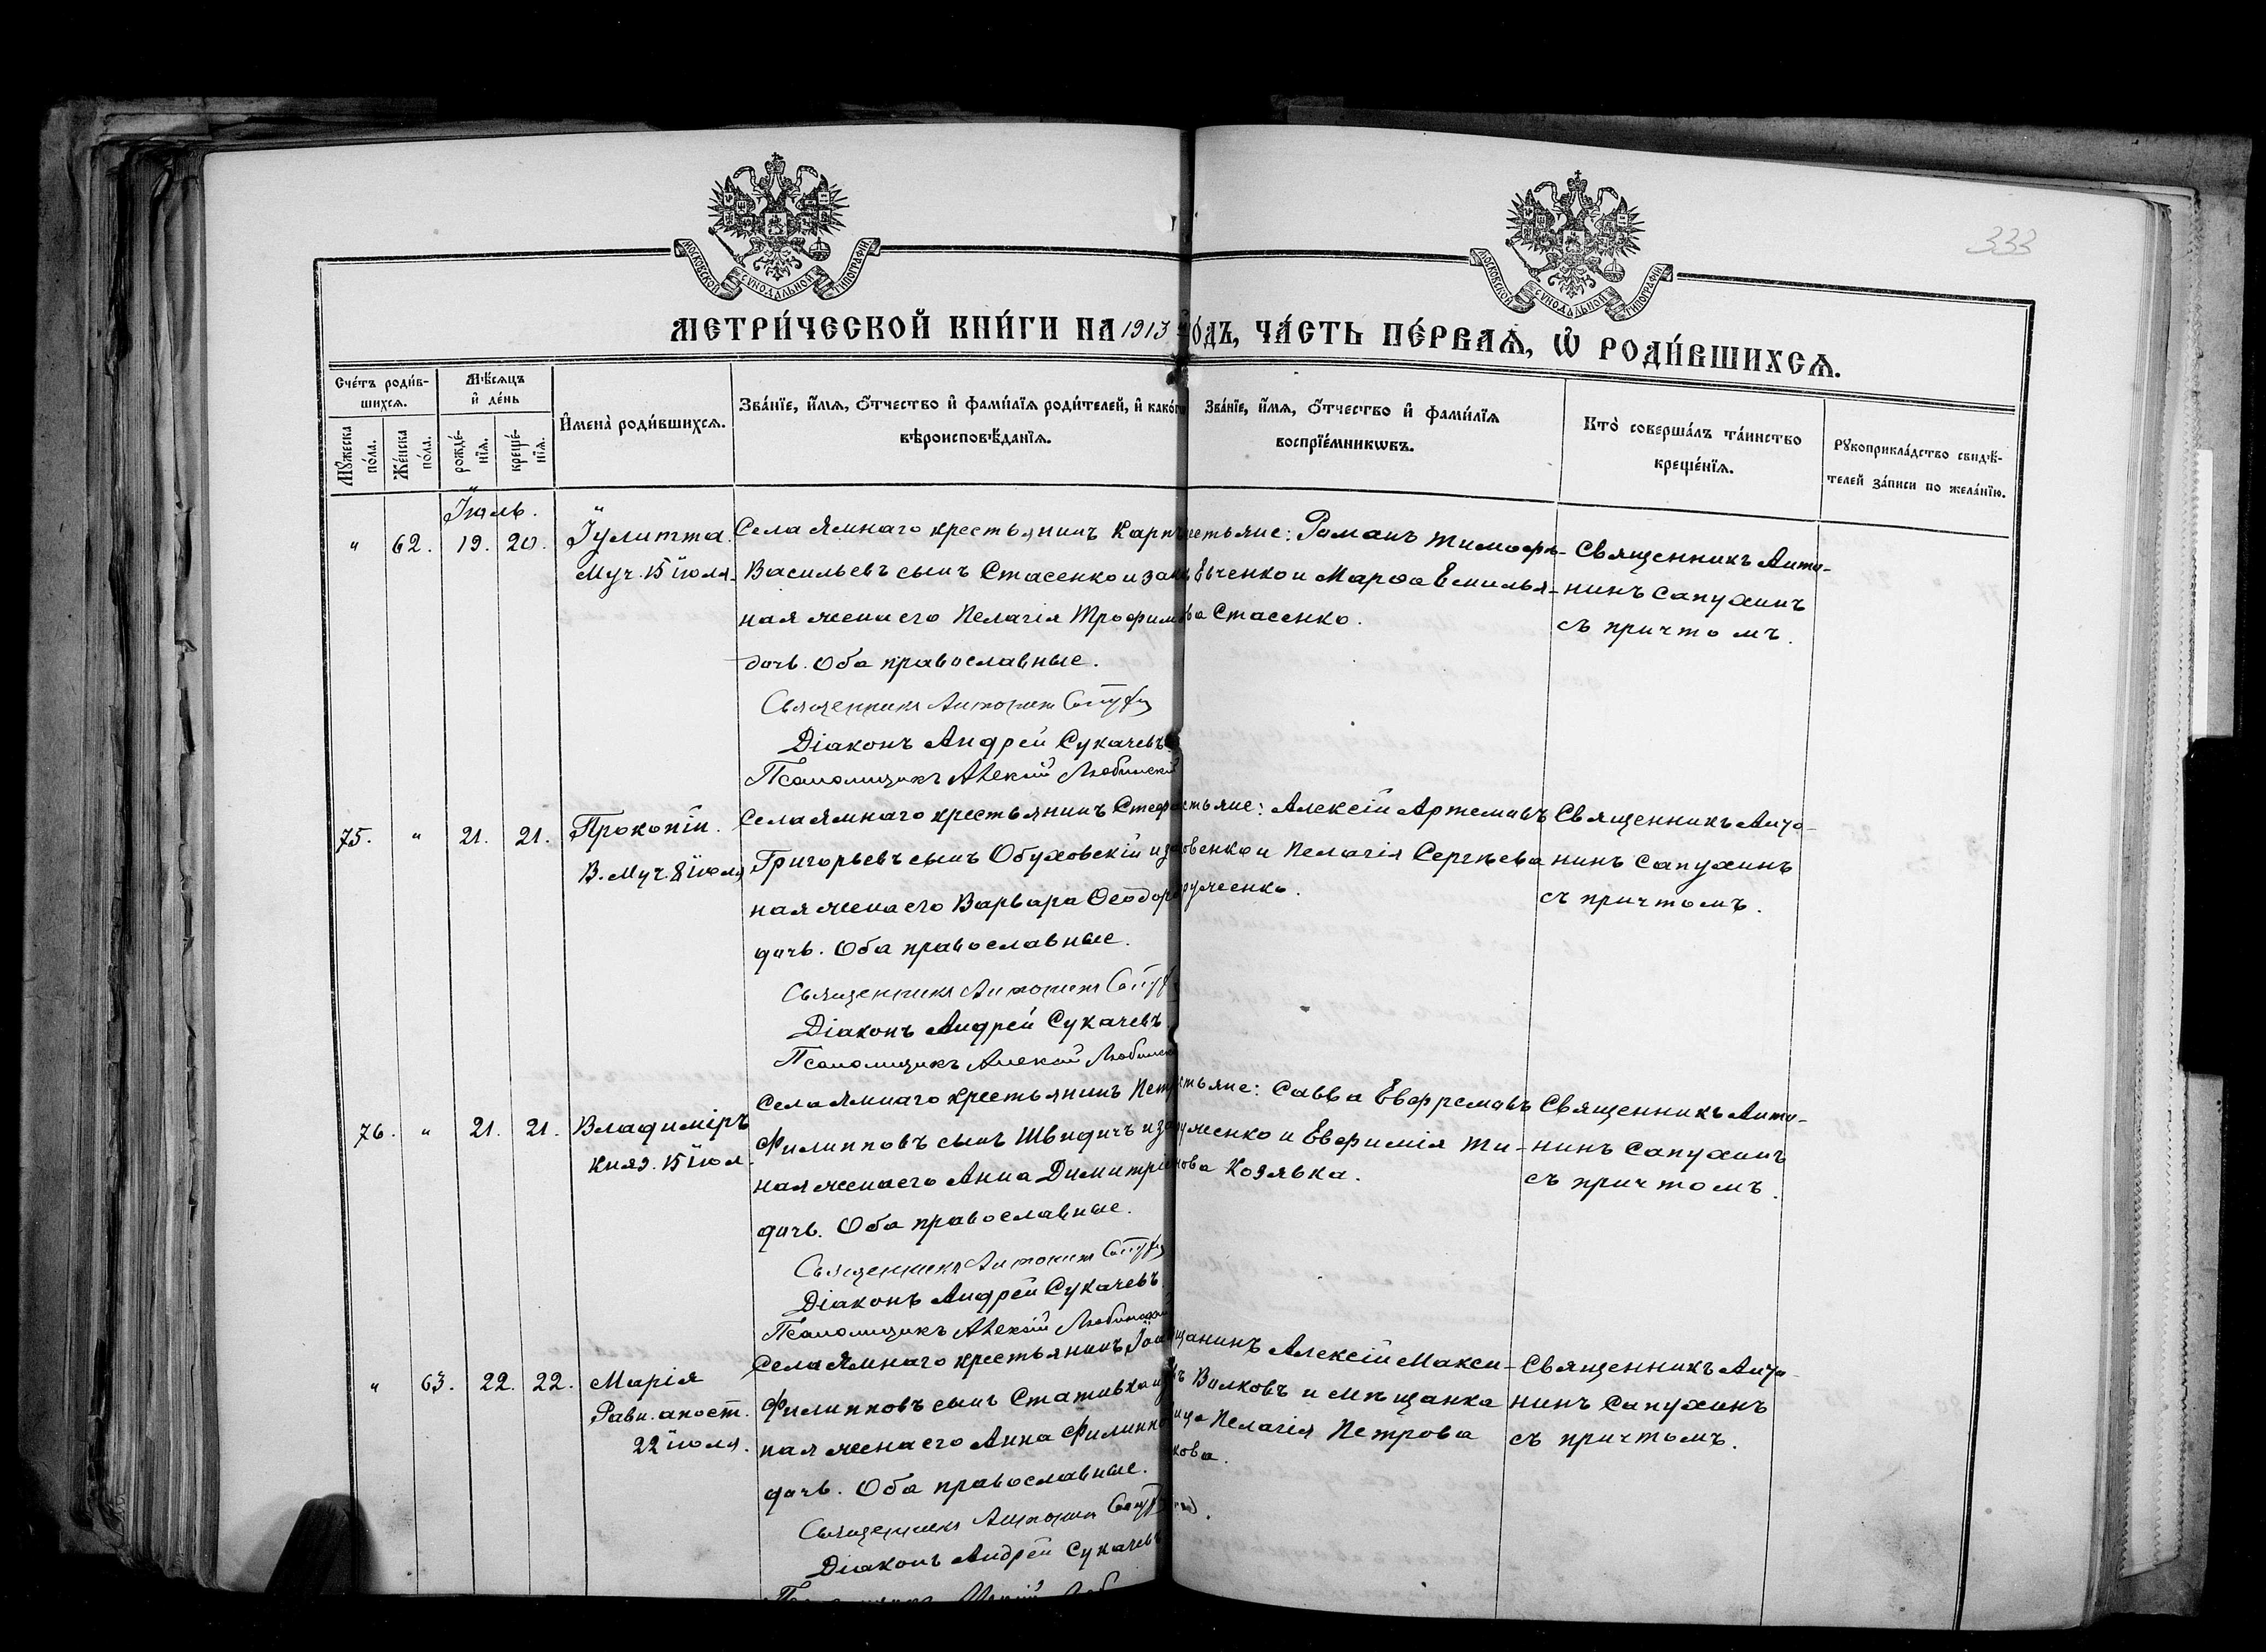 333
МОСКОВСКОЙ СѴНОДАЛЬНОЙ ТИПОГРАФІИ
МОСКОВСКОЙ СѴНОДАЛЬНОЙ ТИПОГРАФІИ
МЕТРИ́ЧЕСКОЙ КНИ́ГИ НА 1913 ГО́ДЪ, ЧА́СТЬ ПЕ́РВАѦ, Ѡ҆ РОДИ́ВШИХСѦ.
Сче́тъ роди́в-
шихсѧ.
Мѣ́сѧцъ
и҆ де́нь
И҆мена̀ роди́вшихсѧ.
Зва́нїе, и҆́мѧ, ѻ҆́тчество и҆ фами́лїѧ роди́телей, и҆ како́гѡ
вѣроисповѣ́данїѧ.
Зва́нїе, и҆́мѧ, ѻ҆́тчество и҆ фами́лїѧ
воспрїе́мникѡвъ.
Кто̀ соверша́лъ та́инство
креще́нїѧ.
Рꙋкоприкла́дство свидѣ́-
телей за́писи по жела́нїю.
Мꙋ́жеска
по́ла.
Же́нска
по́ла.
рожде́-
нїѧ.
креще́-
нїѧ.
Іюль.
" 62. 19. 20.
Іулитта
Муч. 15 іюля.
Села Ямнаго крестьянинъ Карпъ
Васильевъ сынъ Стасенко и закон
ная жена его Пелагія Трофимова
дочь. Оба православные.
Священникъ Антонинъ
Діаконъ Андрей Сукачевъ
Псаломщикъ Алексій Любинскій
крестьяне: Романъ Тимофѣ-
евченко и Марѳа Емилья-
ва Стасенко.
Священникъ Анто-
нинъ Сапухинъ
съ причтомъ.
75. " 21. 21.
Прокопій.
В. Муч. 8 іюля
Села Ямнаго крестьянинъ Стеф
Григорьевъ сынъ Обуховскій и за
ная жена его Варвара Ѳеодоро
дочь. Оба православные.
Священникъ Антонинъ
Діаконъ Андрей Сукачевъ
Псаломщикъ Алексій Любинск
стьяне: Алексій Артемовъ
овенко и Пелагія Сергѣева
руженко.
Священникъ Анто-
нинъ Сапухинъ
съ причтомъ.
76. " 21. 21.
Владиміръ
Княз. 15 іюл.
Села Ямнаго крестьянинъ Петръ
Филипповъ сынъ Швидичъ и за
ная жена его Анна Димитріе
дочь. Оба православные.
Священникъ Антонинъ
Діаконъ Андрей Сукачевъ
Псаломщикъ Алексій Любинскій
стьяне: Савва Евфремовъ
уженко и Евфимія Ти-
нова Козявка.
Священникъ Анто-
нинъ Сапухинъ
съ причтомъ.
" 63. 22. 22.
Марія
Равн. апост.
22 іюля.
Села Ямнаго крестьянинъ Іоа
Филипповъ сынъ Стативка и
ная жена его Анна Филиппо
дочь. Оба православные.
Священникъ Антонинъ
Діаконъ Андрей Сукачевъ
щанинъ Алексій Макси-
въ Волковъ и мѣщанка
ица Пелагія Петрова
кова.
Священникъ Анто-
нинъ Сапухинъ
съ причтомъ.